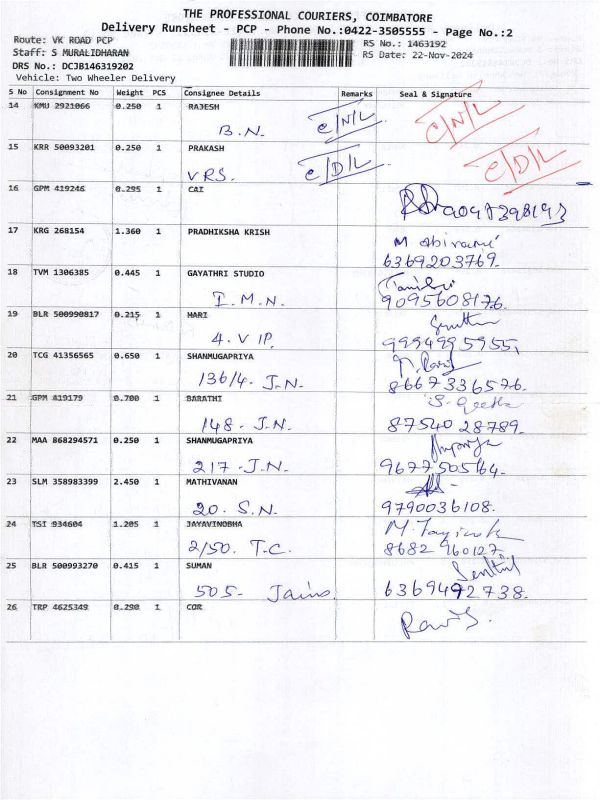 THE PROFESSIONAL COURIERS, COIMBATORE
Delivery Runsheet - PCP - Phone No.:0422-3505555 - Page No.:2
Route: VK ROAD PCP RS No.: 1463192
Staff: S MURALIDHARAN RS Date: 22-Nov-2024
DRS No.: DCJB146319202
Vehicle: Two Wheeler Delivery
S No Consignment No Weight PCS Consignee Details Remarks Seal & Signature
14 KMU 2921066 0.250 1 RAJESH
B.N. C/N/L C/N/L
15 KRR 50093201 0.250 1 PRAKASH
VRS. C/D/L C/D/L
16 GPM 419246 0.295 1 CAI
17 KRG 268154 1.360 1 PRADHIKSHA KRISH
M Abirami
6369203769.
18 TVM 1306385 0.445 1 GAYATHRI STUDIO
I.M.N. 9095608176.
19 BLR 500990817 0.215 1 HARI
4. V IP. 9994995955.
20 TCG 41356565 0.650 1 SHANMUGAPRIYA
136/4. J.N. 8667336576.
21 GPM 419179 0.700 1 BARATHI
S. Geetha
148. J.N. 87540 28789.
22 MAA 868294571 0.250 1 SHANMUGAPRIYA
217 - J.N. 9677505164.
23 SLM 358983399 2.450 1 MATHIVANAN
20. S.N. 9790036108.
24 TSI 934604 1.205 1 JAYAVINOBHA
2/50. T.C. 8682 960127.
25 BLR 500993270 0.415 1 SUMAN
Senthil
505- Jains. 6369492738.
26 TRP 4625349 0.290 1 COR